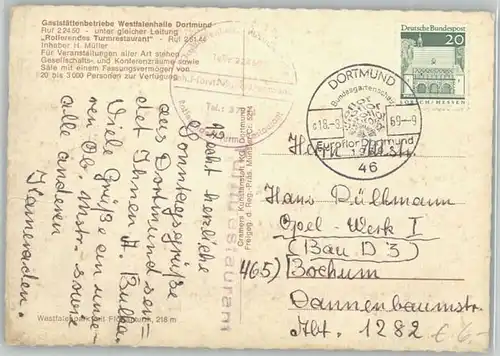 Gaststättenbetriebe Westfalenhalle Dortmund
Ruf 2 24 50 - unter gleicher Leitung
„Rollerendes Turmrestaurant" - Ruf 2 61 44
Inhaber H. Müller
Für Veranstaltungen aller Art stehen
Gesellschafts- und Konferenzräume sowie
Säle mit einem Fassungsvermögen von
20 bis 3 000 Personen zur Verfügung
Recht herzliche
Sonntagsgrüße
aus Dortmund sen-
det Ihnen H.
Viele Grüße an unse-
ren Ob. Mstr. sowie
alle anderen
Kameraden.
Westfalenpark mit Florianturm, 218 m
Cramers Kunstanstalt KG, Dortmund
Freigeg. d. Reg.-Präs. Münster Nr.
Turmrestaurant
Deutsche Bundespost
20
LORSCH/HESSEN
DORTMUND
Bundesgartenschau
69-9
Euroflor Dortmund
1969
46
Hans Rüllmann
Opel-Werk I
(Bau D 3)
(465) Bochum
Dannenbaumstr.
Abt. 1282
€ 6,-